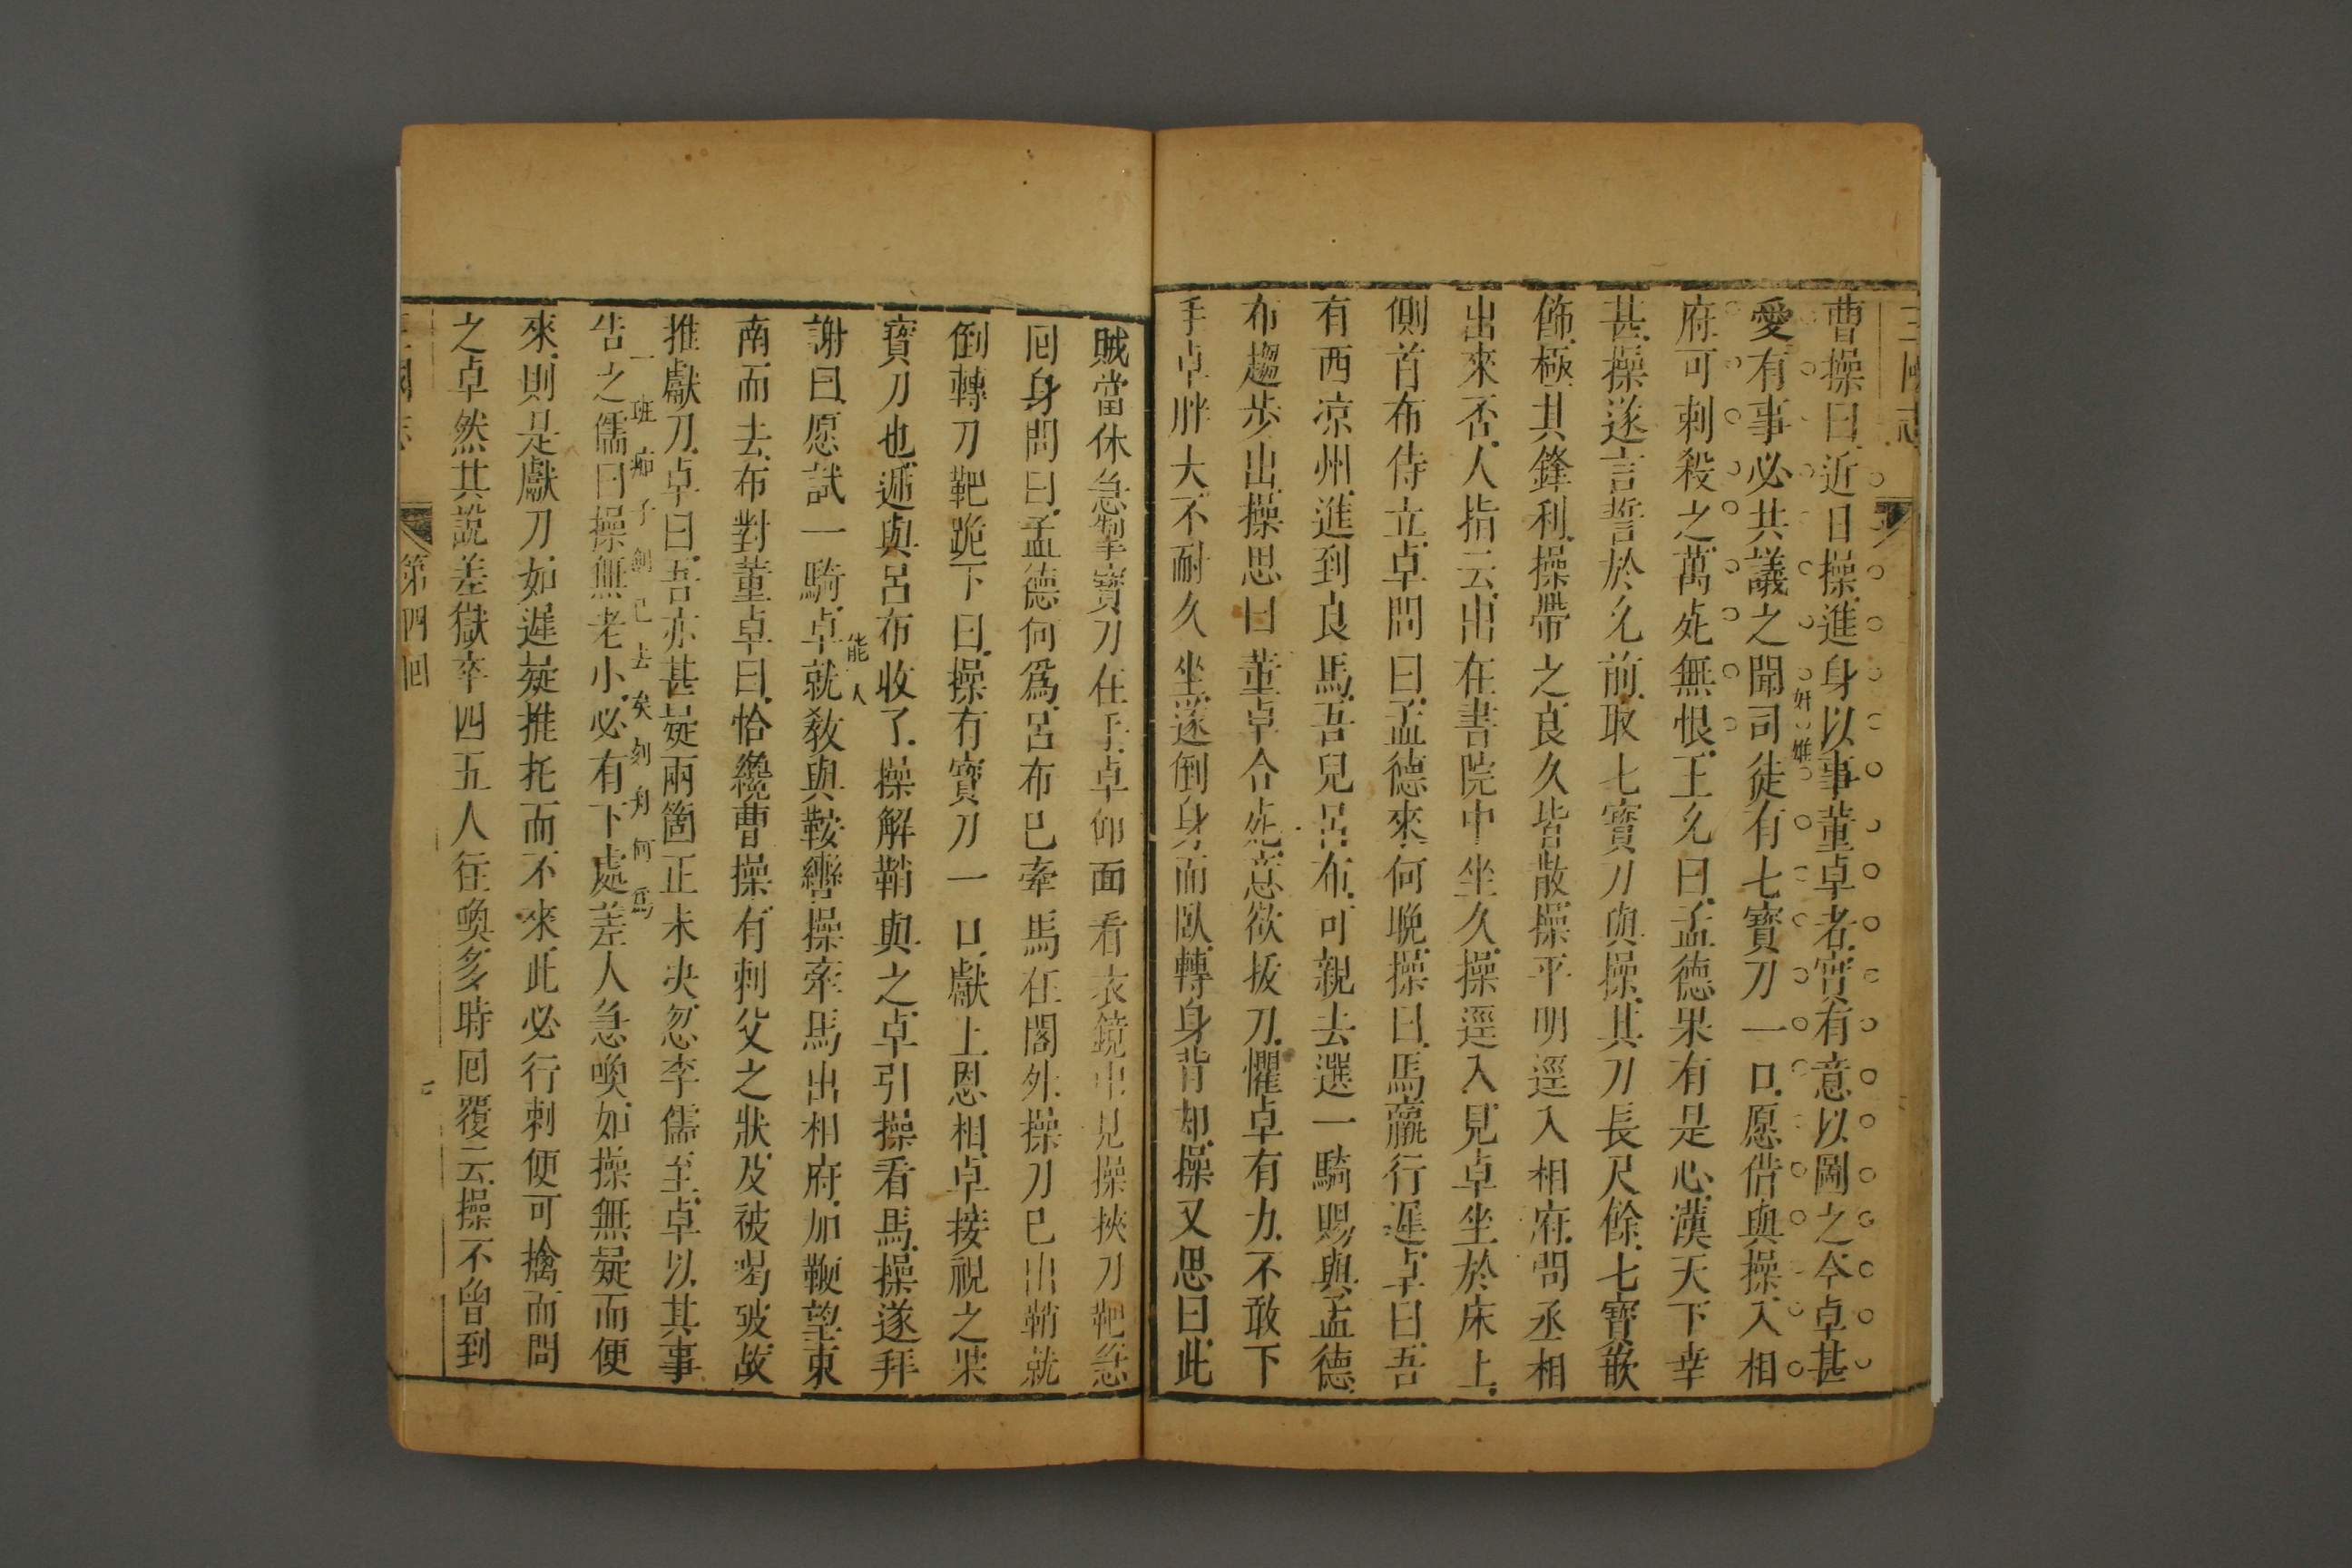 三國志
曹操曰近日操進身以事董卓者實有意以圖之今卓甚
愛有事必共議之聞司徒有七寶刀一口愿借與操入相
奸雄
府可刺殺之萬死無恨王允曰孟德果有是心漢天下幸
甚操遂言誓於允前取七寶刀與操其刀長尺餘七寶嵌
飾極其鋒利操帶之良久皆散操平明逕入相府問丞相
出來否人指云出在書院中坐久操逕入見卓坐於床上
側首布侍立卓問曰孟德來何晚操曰馬羸行遲卓曰吾
有西凉州進到良馬吾兒呂布可親去選一騎賜與孟德
布趨步出操思曰董卓合死意欲扳刀懼卓有力不敢下
手卓胖大不耐久坐遂倒身而臥轉身背却操又思曰此
賊當休急掣寶刀在手卓仰面看衣鏡中見操挾刀靶急
囘身問曰孟德何爲呂布已牽馬在閣外操刀已出鞘就
倒轉刀靶跪下曰操有寶刀一口獻上恩相卓接視之果
寶刀也遞與呂布收了操解鞘與之卓引操看馬操遂拜
能人
謝曰愿試一騎卓就教與鞍轡操牽馬出相府加鞭望東
南而去布對董卓曰恰纔曹操有刺父之狀及被喝破故
推獻刀卓曰吾亦甚疑兩箇正未决忽李儒至卓以其事
一班痴子劍已去矣刻舟何爲
告之儒曰操無老小必有下處差人急喚如操無疑而便
來則是獻刀如遲疑推托而不來此必行刺便可擒而問
之卓然其說差獄卒四五人徃喚多時囘覆云操不曾到
三國志
第四囘